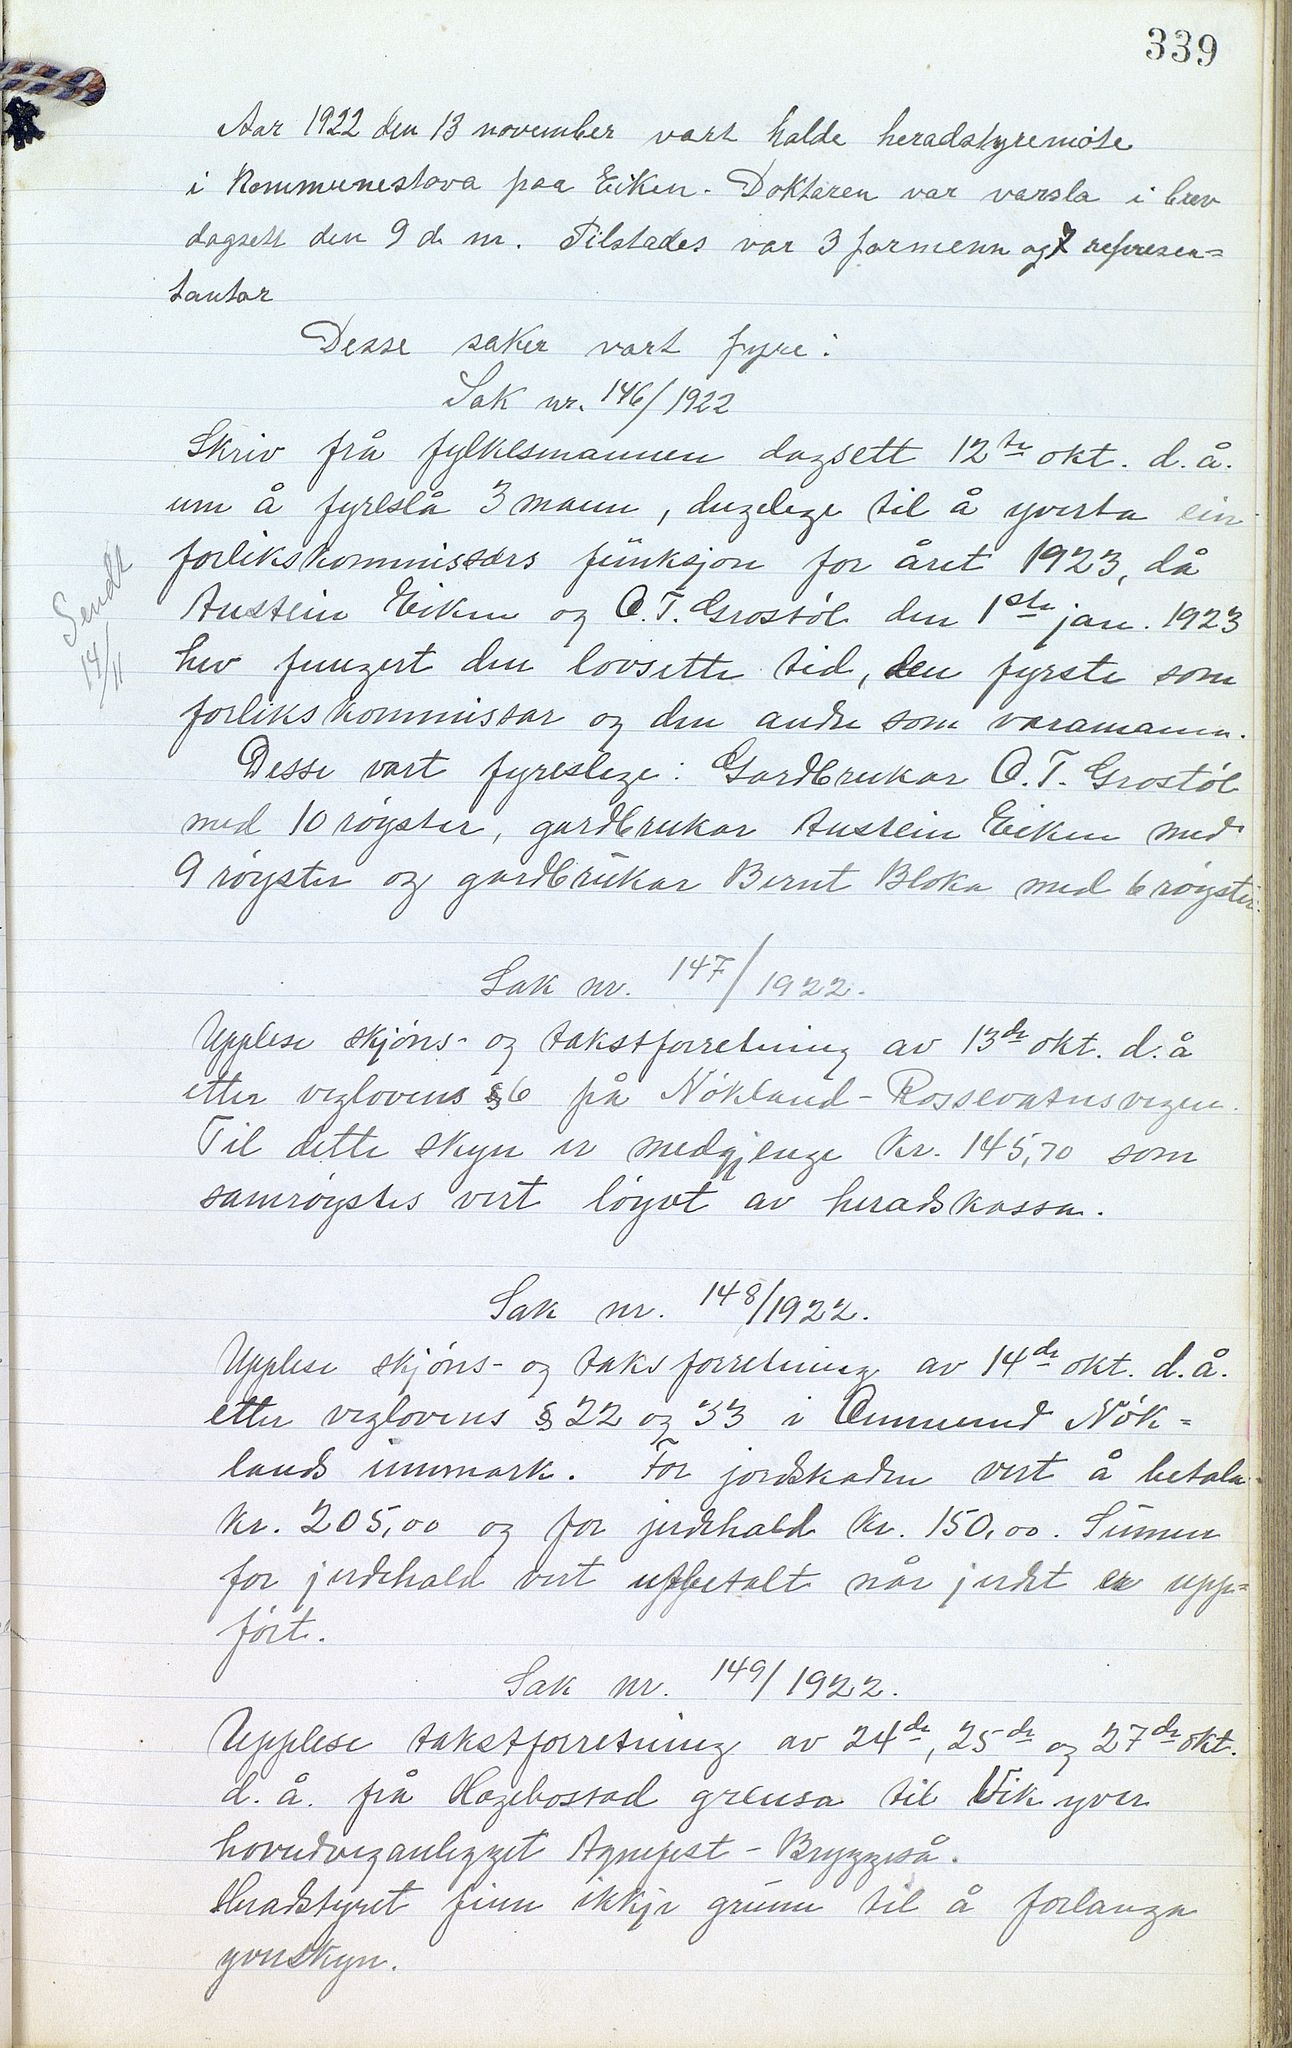 339
Aar 1922 den 13 november vart halde heradstyremöte
i Kommunestova paa Eiken. Doktaren var varsla i brev
dagsett den 9 d. m. Tilstades var 3 formenn og 7 represen=
tantar
Desse saker vart fyre:
Sak nr. 146/1922
Skriv frå fylkesmannen dagsett 12te okt. d.å.
um å fyreslå 3 mann, dugelege til å yverta ein
forlikskommissærs funksjon for året 1923, då
Austein Eiken og O.T. Grostøl den 1ste jan. 1923
hev fungert den lovsette tid, den fyrste som
forlikskommissar og den andre som varamann.
Desse vart fyreslege: Gardbrukar O.T. Grostøl
med 10 røyster, gardbrukar Austein Eiken med
9 røyster og gardbrukar Bernt Bloka med 6 røyster.
Sendt
14/11
Sak nr. 147/1922.
Upplese skjøns- og takstforretning av 13de okt. d.å
etter veglovens § 6 på Nökland-Rossevatnsvegen.
Til dette skyn er medgjenge kr. 145,70 som
samrøystes vert løyvt av heradskassa.
Sak nr. 148/1922.
Upplese skjøns- og taksforretning av 14de okt. d.å.
etter veglovens § 22 og 33 i Ommund Nök=
lands innmark. For jordskaden vert å betala
kr. 205,00 og for jerdehald kr. 150,00. Sumen
for jerdehald vert utbetalt når jerdet er upp=
ført.
Sak nr. 149/1922.
Upplese takstforretning av 24de, 25de og 27de okt.
d.å. frå Hægebostad grensa til Vik yver
hovudveganlegget Agnefest - Bryggeså.
Heradstyret finn ikkje grunn til å forlanga
yverskyn.